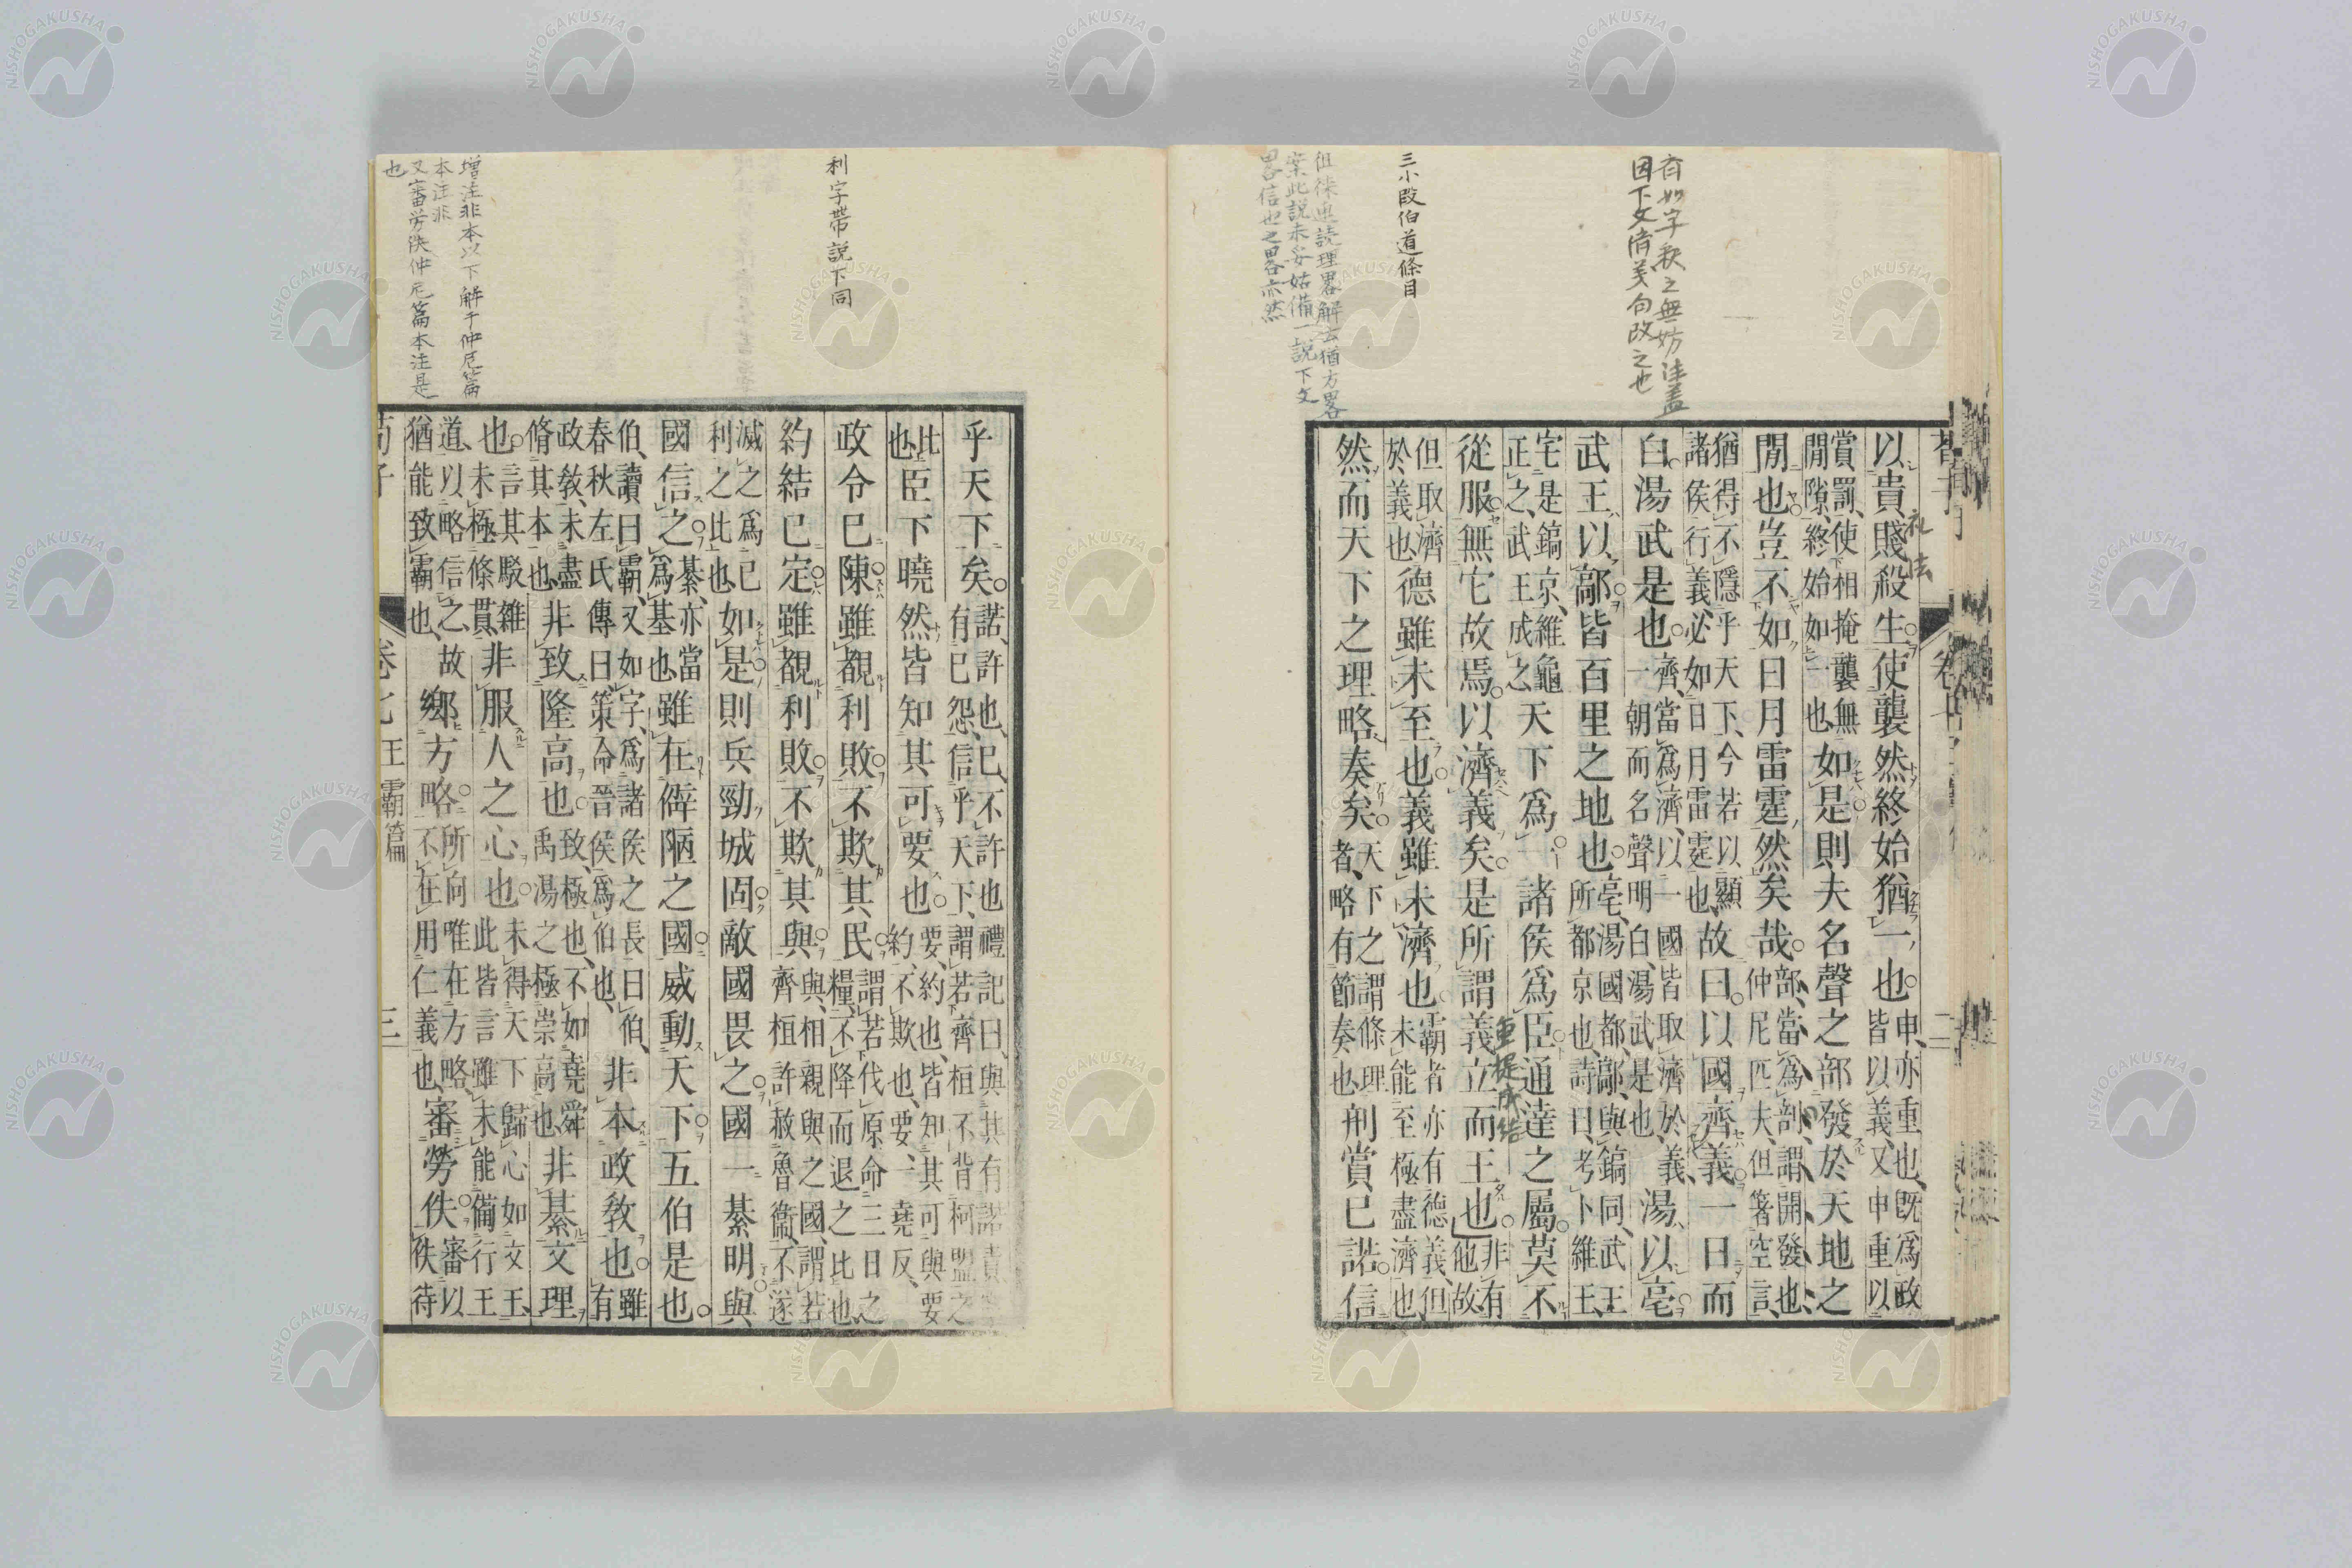 有如字秋之無妨注蓋
因下文濟義句改之也
三小段伯道條目
徂徠進読理畧解云猶方畧
案此説未妥姑備一説下文
畧信也之畧亦然
以貴賤殺生使襲然終始猶一也申亦重也既爲政皆以義又申重以
礼法
賞罰使相掩襲無間隙終始如一也如是則夫名聲之部發於天地之
閒也豈不如日月雷霆然矣哉部當爲剖謂開發也仲尼匹夫但箸空言
猶得不隱乎天下今若以顯諸侯行義必如日月雷霆也故曰以國齊義一日而
白湯武是也齊當爲濟以一國皆取濟於義一朝而名聲明白湯武是也湯以亳
武王以鄗皆百里之地也亳湯國都鄗與鎬同武王所都京也詩曰考卜維王
宅是鎬京維龜正之武王成之天下爲一諸侯爲臣通達之屬莫不
從服無它故焉以濟義矣是所謂義立而王也非有他故
重提成結
但取濟於義也德雖未至也義雖未濟也霸者亦有德義但未能至極盡濟也
然而天下之理略奏矣天下之謂條理者略有節奏也刑賞已諾信
利字帶説下同
増注非本以下解于仲尼篇
本注非
又審労佚仲尼篇本注是
也
乎天下矣諾許也已不許也禮記曰與其有諾責有已怨信乎天下謂若齊桓不背柯盟之
比也臣下曉然皆知其可要也要約也皆知其可與要約不欺也要一堯反
政令已陳雖覩利敗不欺其民謂若伐原命三日之糧不降而退之比也
約結已定雖覩利敗不欺其與與相親與之國謂若齊桓許赦魯衞不遂
滅之爲已利之比也如是則兵勁城固敵國畏之國一綦明與
國信之綦亦當爲基也雖在僻陋之國威動天下五伯是也
伯讀曰霸又如字爲諸侯之長曰伯春秋左氏傳曰策命晉侯爲伯也非本政敎也雖有
政敎未盡脩其本也非致隆高也致極也不如堯舜禹湯之極崇高也非綦文理
也言其駁雜未極條貫非服人之心也未得天下歸心如文王此皆言雖未能備行王
道以略信之故猶能致霸也鄉方略所向唯在方略不在用仁義也審勞佚審以佚待
荀子
卷七王霸篇
三